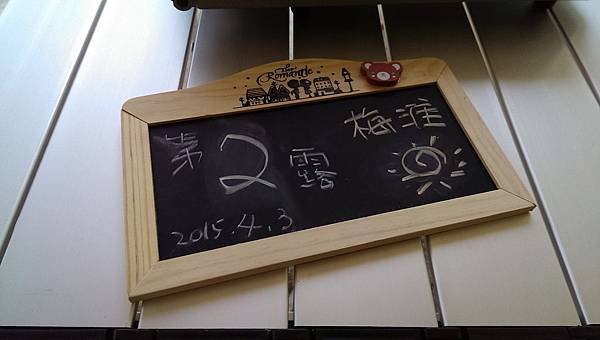 Romantic
梅淮
第2露
2015.4.3